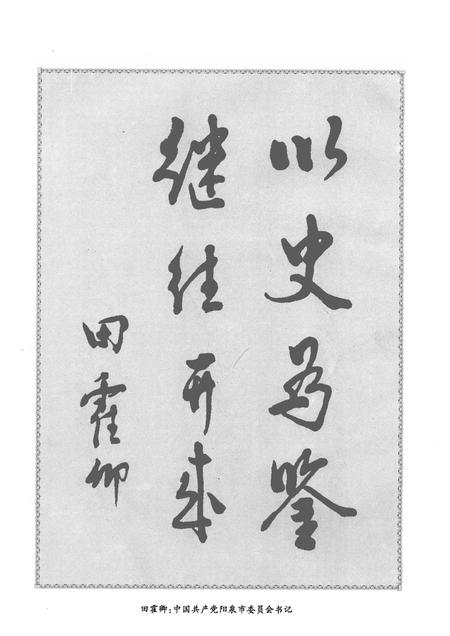 以史为鉴
继往开来
田霍卿
田霍卿：中国共产党阳泉市委员会书记